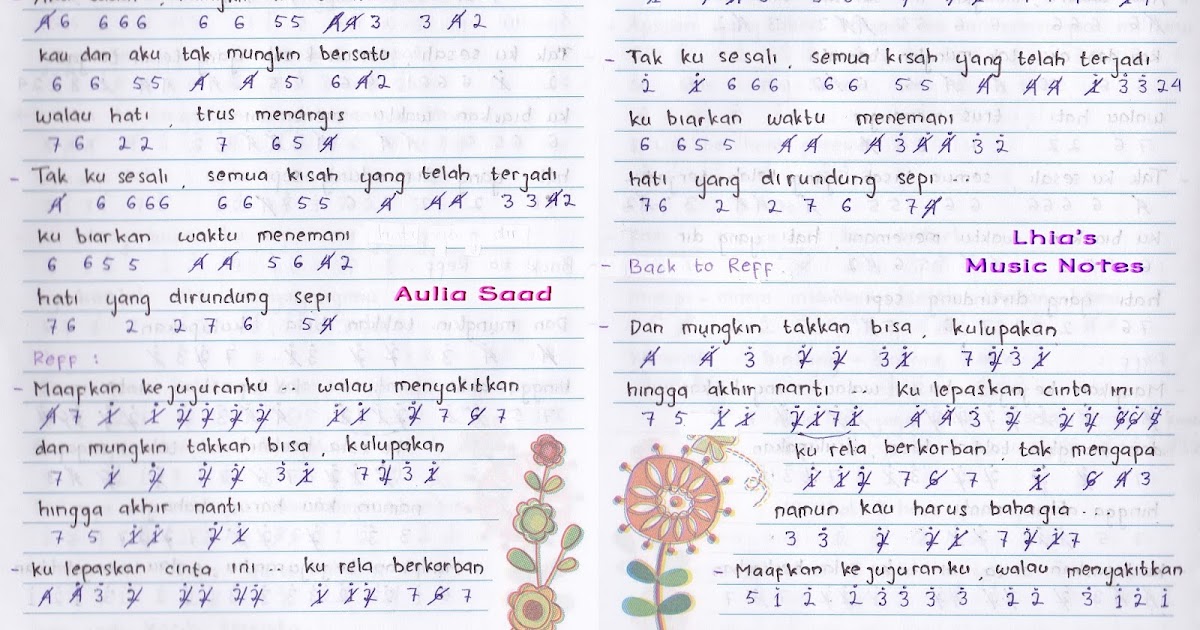 4 6 6 6 6 6 5 5 4 4 3 3 4 2
kau dan aku tak mungkin bersatu
6 6 5 5 4 4 5 6 4 2
walau hati, trus menangis
7 6 2 2 7 6 5 4
- Tak ku sesali, semua kisah yang telah terjadi
4 6 6 6 6 6 6 5 5 4 4 4 3 3 4 2
ku biarkan waktu menemani
6 6 5 5 4 4 5 6 4 2
hati yang dirundung sepi
7 6 2 2 7 6 5 4
Aulia Saad
Reff :
- Maafkan kejujuranku walau menyakitkan
4 7 1 1 2 2 2 2 1 1 2 7 6 7
dan mungkin takkan bisa, kulupakan
7 1 2 2 2 3 1 7 2 3 1
hingga akhir nanti
7 5 1 1 2 1
- ku lepaskan cinta ini ... ku rela berkorban
4 4 3 2 2 2 2 2 1 1 1 2 7 6 7
- Tak ku sesali, semua kisah yang telah terjadi
2 1 6 6 6 6 6 5 5 4 4 4 1 3 3 2 4
ku biarkan waktu menemani
6 6 5 5 4 4 4 3 4 4 3 2
hati yang dirundung sepi ...
7 6 2 2 7 6 7 4
Lhia's
Music Notes
- Back to Reff.
- Dan mungkin takkan bisa, kulupakan
4 4 3 2 2 3 1 7 2 3 1
hingga akhir nanti ... ku lepaskan cinta ini
7 5 1 1 2 1 7 1 4 4 3 2 2 2 6 6 4
ku rela berkorban, tak mengapa
1 1 2 7 6 7 1 6 4 3
namun kau harus bahagia ...
3 3 2 2 1 7 2 1 7
- Maafkan kejujuranku, walau menyakitkan
5 1 2 2 3 3 3 3 2 2 3 1 2 1